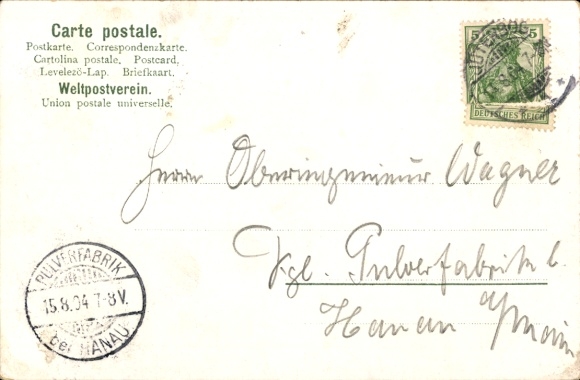 Carte postale.
Postkarte. Correspondenzkarte.
Cartolina postale. Postcard.
Levelező-Lap. Briefkaart.
Weltpostverein.
Union postale universelle.
5 5
JÜTERBOG
DEUTSCHES REICH
Herrn Oberingenieur Wagner
Kgl. Pulverfabrik b.
Hanau a/Main
PULVERFABRIK
15.8.04 7-8V.
bei HANAU